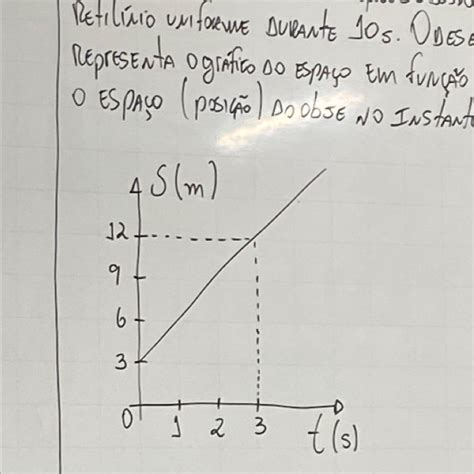 RETILÍNIO UNIFORME DURANTE 10s. O DESE
REPRESENTA O GRÁFICO DO ESPAÇO EM FUNÇÃO
O ESPAÇO (POSIÇÃO) DO OBJE NO INSTANT
S(m)
12
9
6
3
0 1 2 3 t(s)